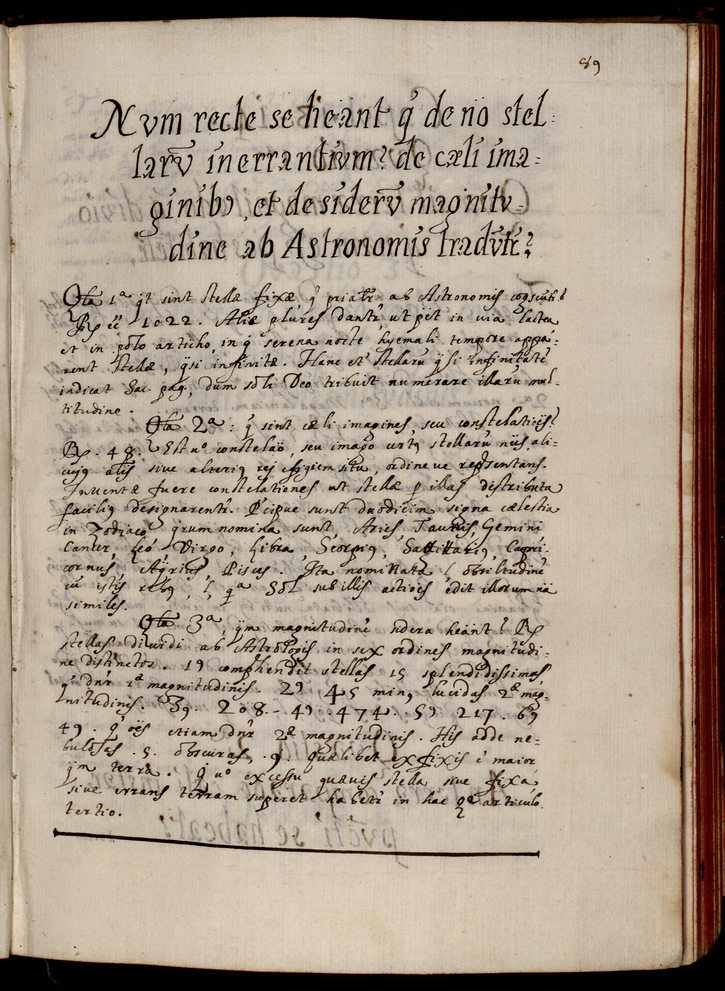 89
Nvm recte se heant q̃ de nõ stel-
larũ inerrantivm? de cæli ima-
ginibꝰ, et de siderũ magnitv-
dine ab Astronomis tradvtr̃?
Qta 1ª qt sint stellæ fixæ, q̃ ab Astronomis
Rp eẽ 1022. Aliæ plures dantr̃ ut pẽt in via lactea
et in polo articho, in q̃ serena nocte hyemali tempore appa-
rent stellæ, qsi infinitæ. Hanc et stellarũ qsi infinitatẽ
indicat Sac. pag, dum soli Deo tribuit numerare illarũ mul-
titudine.
Qta 2ª: q̃ sint cæli imagines, seu constelatiões?
Rp. 48. Est uº constelaõ, seu imago stellarũ ali-
cujꝰ alis sive alteriꝰ rej effigiem situ, ordine ve repsentans.
Inventæ fuere constelationes ut stellæ p illas distributa
faciliꝰ designarentr. Pcipue sunt duodicim signa cælestia
in Zodiaco qrum nomina sunt. Aries, Taurus, Gemini
Cancer, Leo Virgo, Libra, Scorpiꝰ, Sagittariꝰ, Capri-
cornus, Aqriuꝰ, Pisces. Ita nominata l ob similtudinẽ
cũ istis rebꝰ, l qª Sol sub illis actiões edit illorum nã
similes.
Qta 3ª, qm magnitudinẽ sidera heant? Rp
stellas dividi ab Astrologis in sex ordines magnitudi-
ne distinctos. 1ꝰ comphendit stellas 15 splendidissimas
q̃ dnr̃ 1ª magnitudinis. 2ꝰ 45 minꝰ lucidas 2ª mag-
nitudinis. 3ꝰ. 208. - 4ꝰ. 474. 5ꝰ 217. 6ꝰ
49. q̃ oẽs etiam dnr̃ 2ª magnitudinis. His adde ne-
bulosas. 5. obscuras. 9. quælibet ex fixis ẽ maior
qm terra. q̃ uº excessu quævis stella sive fixa
sive errans terram superet habetr̃ in hac q. articulo
tertio.